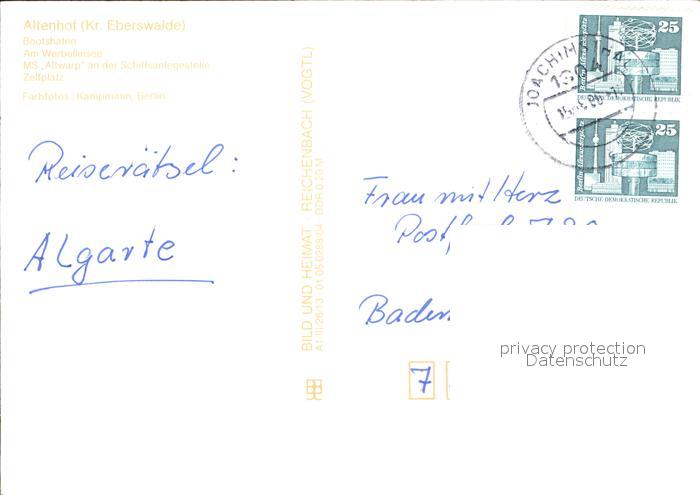 Altenhof (Kr. Eberswalde)
Bootshafen
Am Werbellinsee
MS „Altwarp" an der Schiffsanlegestelle
Zeltplatz
Farbfotos: Kampmann, Berlin
Reiserätsel:
Algarte
BILD UND HEIMAT REICHENBACH (VOGTL)
A1/III/26/13 01 05 0288/04 DDR 0,20 M
JOACHIMSTHAL
25
Berlin, Alexanderplatz
DEUTSCHE DEMOKRATISCHE REPUBLIK
25
Berlin, Alexanderplatz
DEUTSCHE DEMOKRATISCHE REPUBLIK
Frau mit Herz
Baden
7
privacy protection
Datenschutz